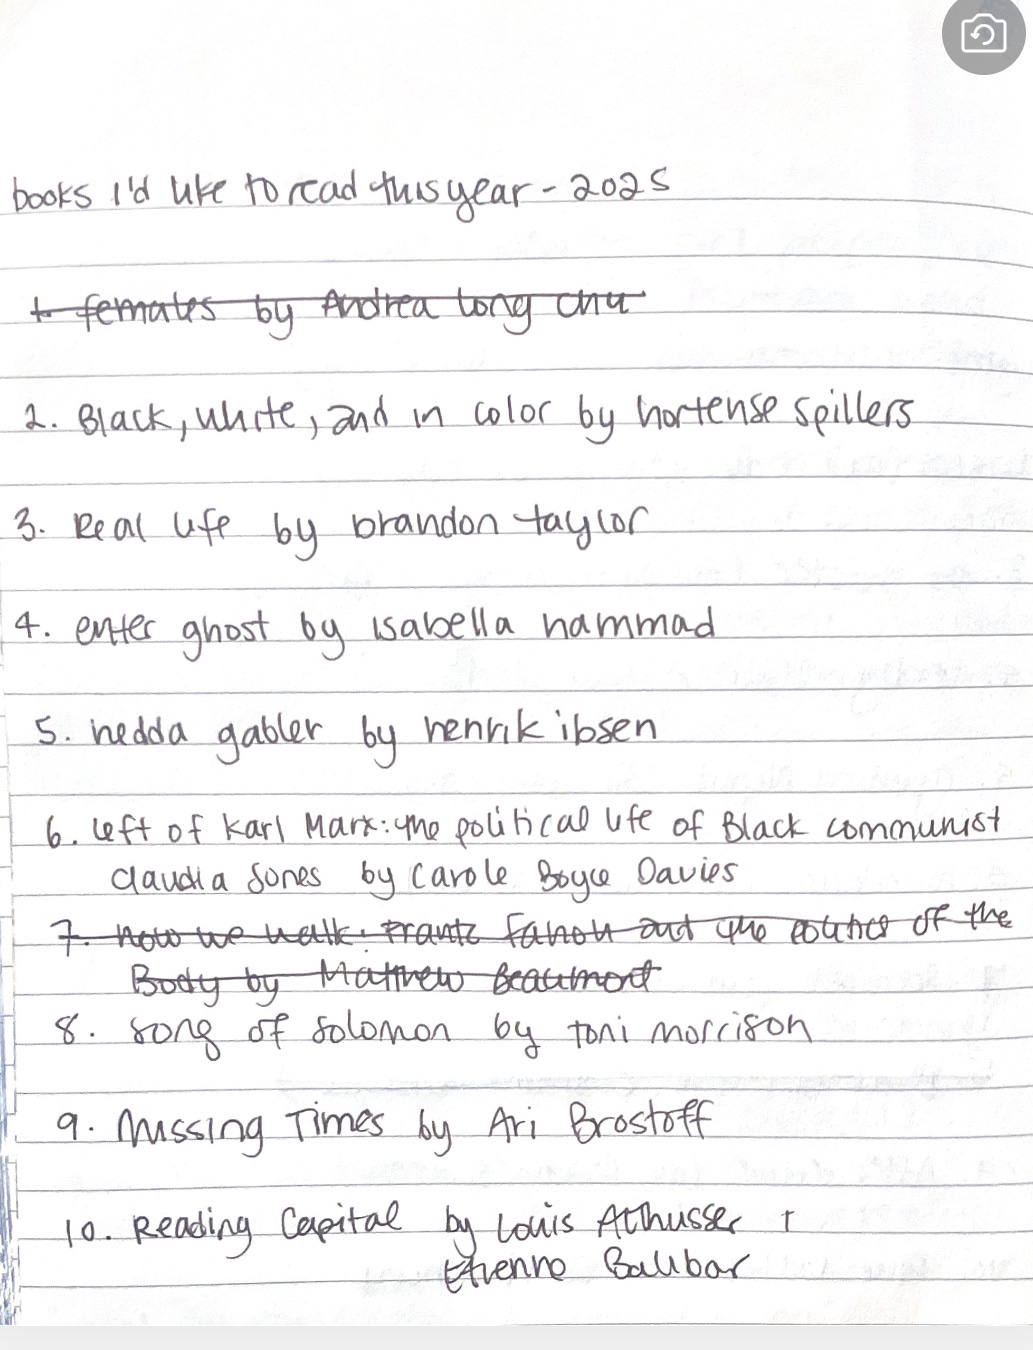 books I'd like to read this year - 2025
1. females by Andrea Long chu
2. Black, white, and in color by hortense spillers
3. Real life by brandon taylor
4. enter ghost by isabella hammad
5. hedda gabler by henrik ibsen
6. Left of Karl Marx: the political life of Black communist
Claudia Jones by Carole Boyce Davies
7. how we walk: Frantz Fanon and the politics of the
Body by Matthew Beaumont
8. song of solomon by toni morrison
9. Missing Times by Ari Brostoff
10. Reading Capital by Louis Althusser +
Etienne Balibar